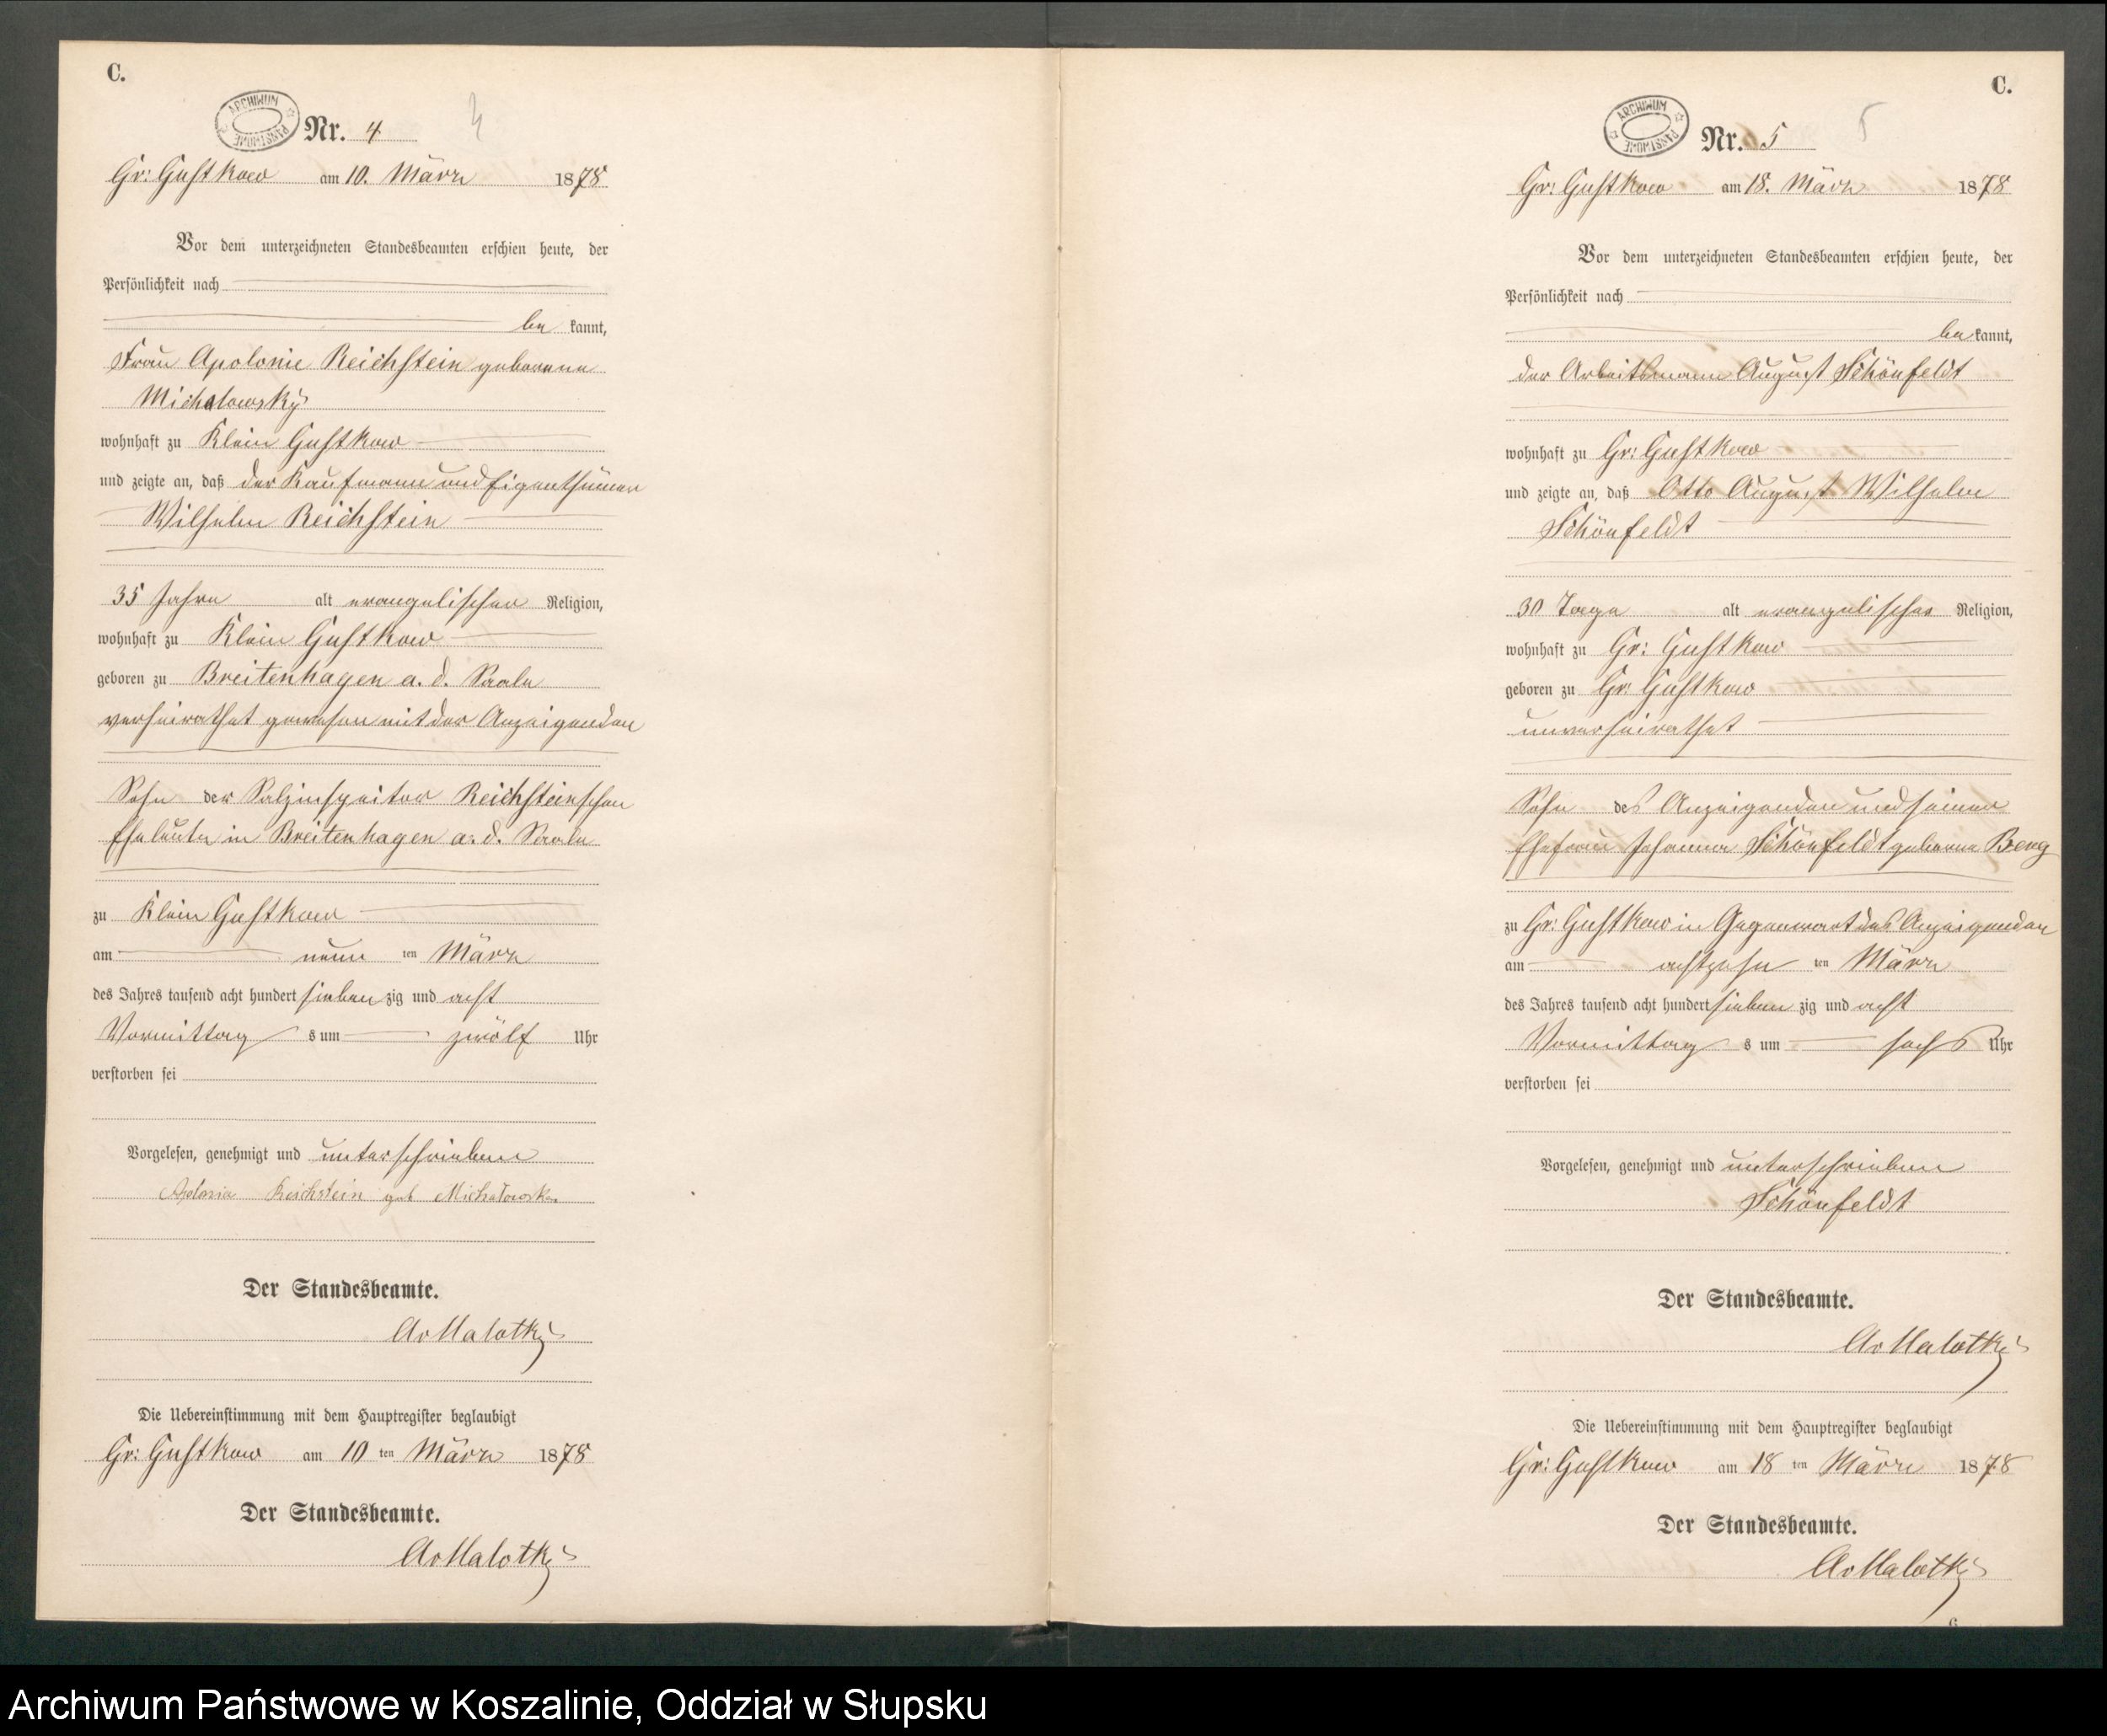 C.
ARCHIWUM PAŃSTWOWE
Nr. 4
4
Gr: Gustkow am 10. März 1878
Vor dem unterzeichneten Standesbeamten erschien heute, der
Persönlichkeit nach
be kannt,
Frau Apolonie Reichstein geborene
Michalowsky
wohnhaft zu Klein Gustkow
und zeigte an, daß der Kaufmann und Eigenthümer
Wilhelm Reichstein
35 Jahre alt evangelischer Religion,
wohnhaft zu Klein Gustkow
geboren zu Breitenhagen a. d. Saale
verheirathet gewesen mit der Anzeigenden
Sohn der Salzinspektor Reichsteinschen
Eheleute in Breitenhagen a. d. Saale
zu Klein Gustkow
am neun ten März
des Jahres tausend acht hundert sieben zig und acht
Vormittag s um zwölf Uhr
verstorben sei
Vorgelesen, genehmigt und unterschrieben
Apolonia Reichstein geb Michałowska
Der Standesbeamte.
AvMalotky
Die Uebereinstimmung mit dem Hauptregister beglaubigt
Gr: Gustkow am 10 ten März 1878
Der Standesbeamte.
AvMalotky
C.
ARCHIWUM PAŃSTWOWE
Nr. 5
5
Gr: Gustkow am 18. März 1878
Vor dem unterzeichneten Standesbeamten erschien heute, der
Persönlichkeit nach
be kannt,
der Arbeitsmann August Schönfeldt
wohnhaft zu Gr: Gustkow
und zeigte an, daß Otto August Wilhelm
Schönfeldt
30 Tage alt evangelischer Religion,
wohnhaft zu Gr: Gustkow
geboren zu Gr: Gustkow
unverheirathet
Sohn des Anzeigenden und seiner
Ehefrau Johanna Schönfeldt geborene Berg
zu Gr: Gustkow in Gegenwart des Anzeigenden
am achtzehn ten März
des Jahres tausend acht hundert sieben zig und acht
Vormittag s um sechs Uhr
verstorben sei
Vorgelesen, genehmigt und unterschrieben
Schönfeldt
Der Standesbeamte.
AvMalotky
Die Uebereinstimmung mit dem Hauptregister beglaubigt
Gr: Gustkow am 18 ten März 1878
Der Standesbeamte.
AvMalotky
Archiwum Państwowe w Koszalinie, Oddział w Słupsku